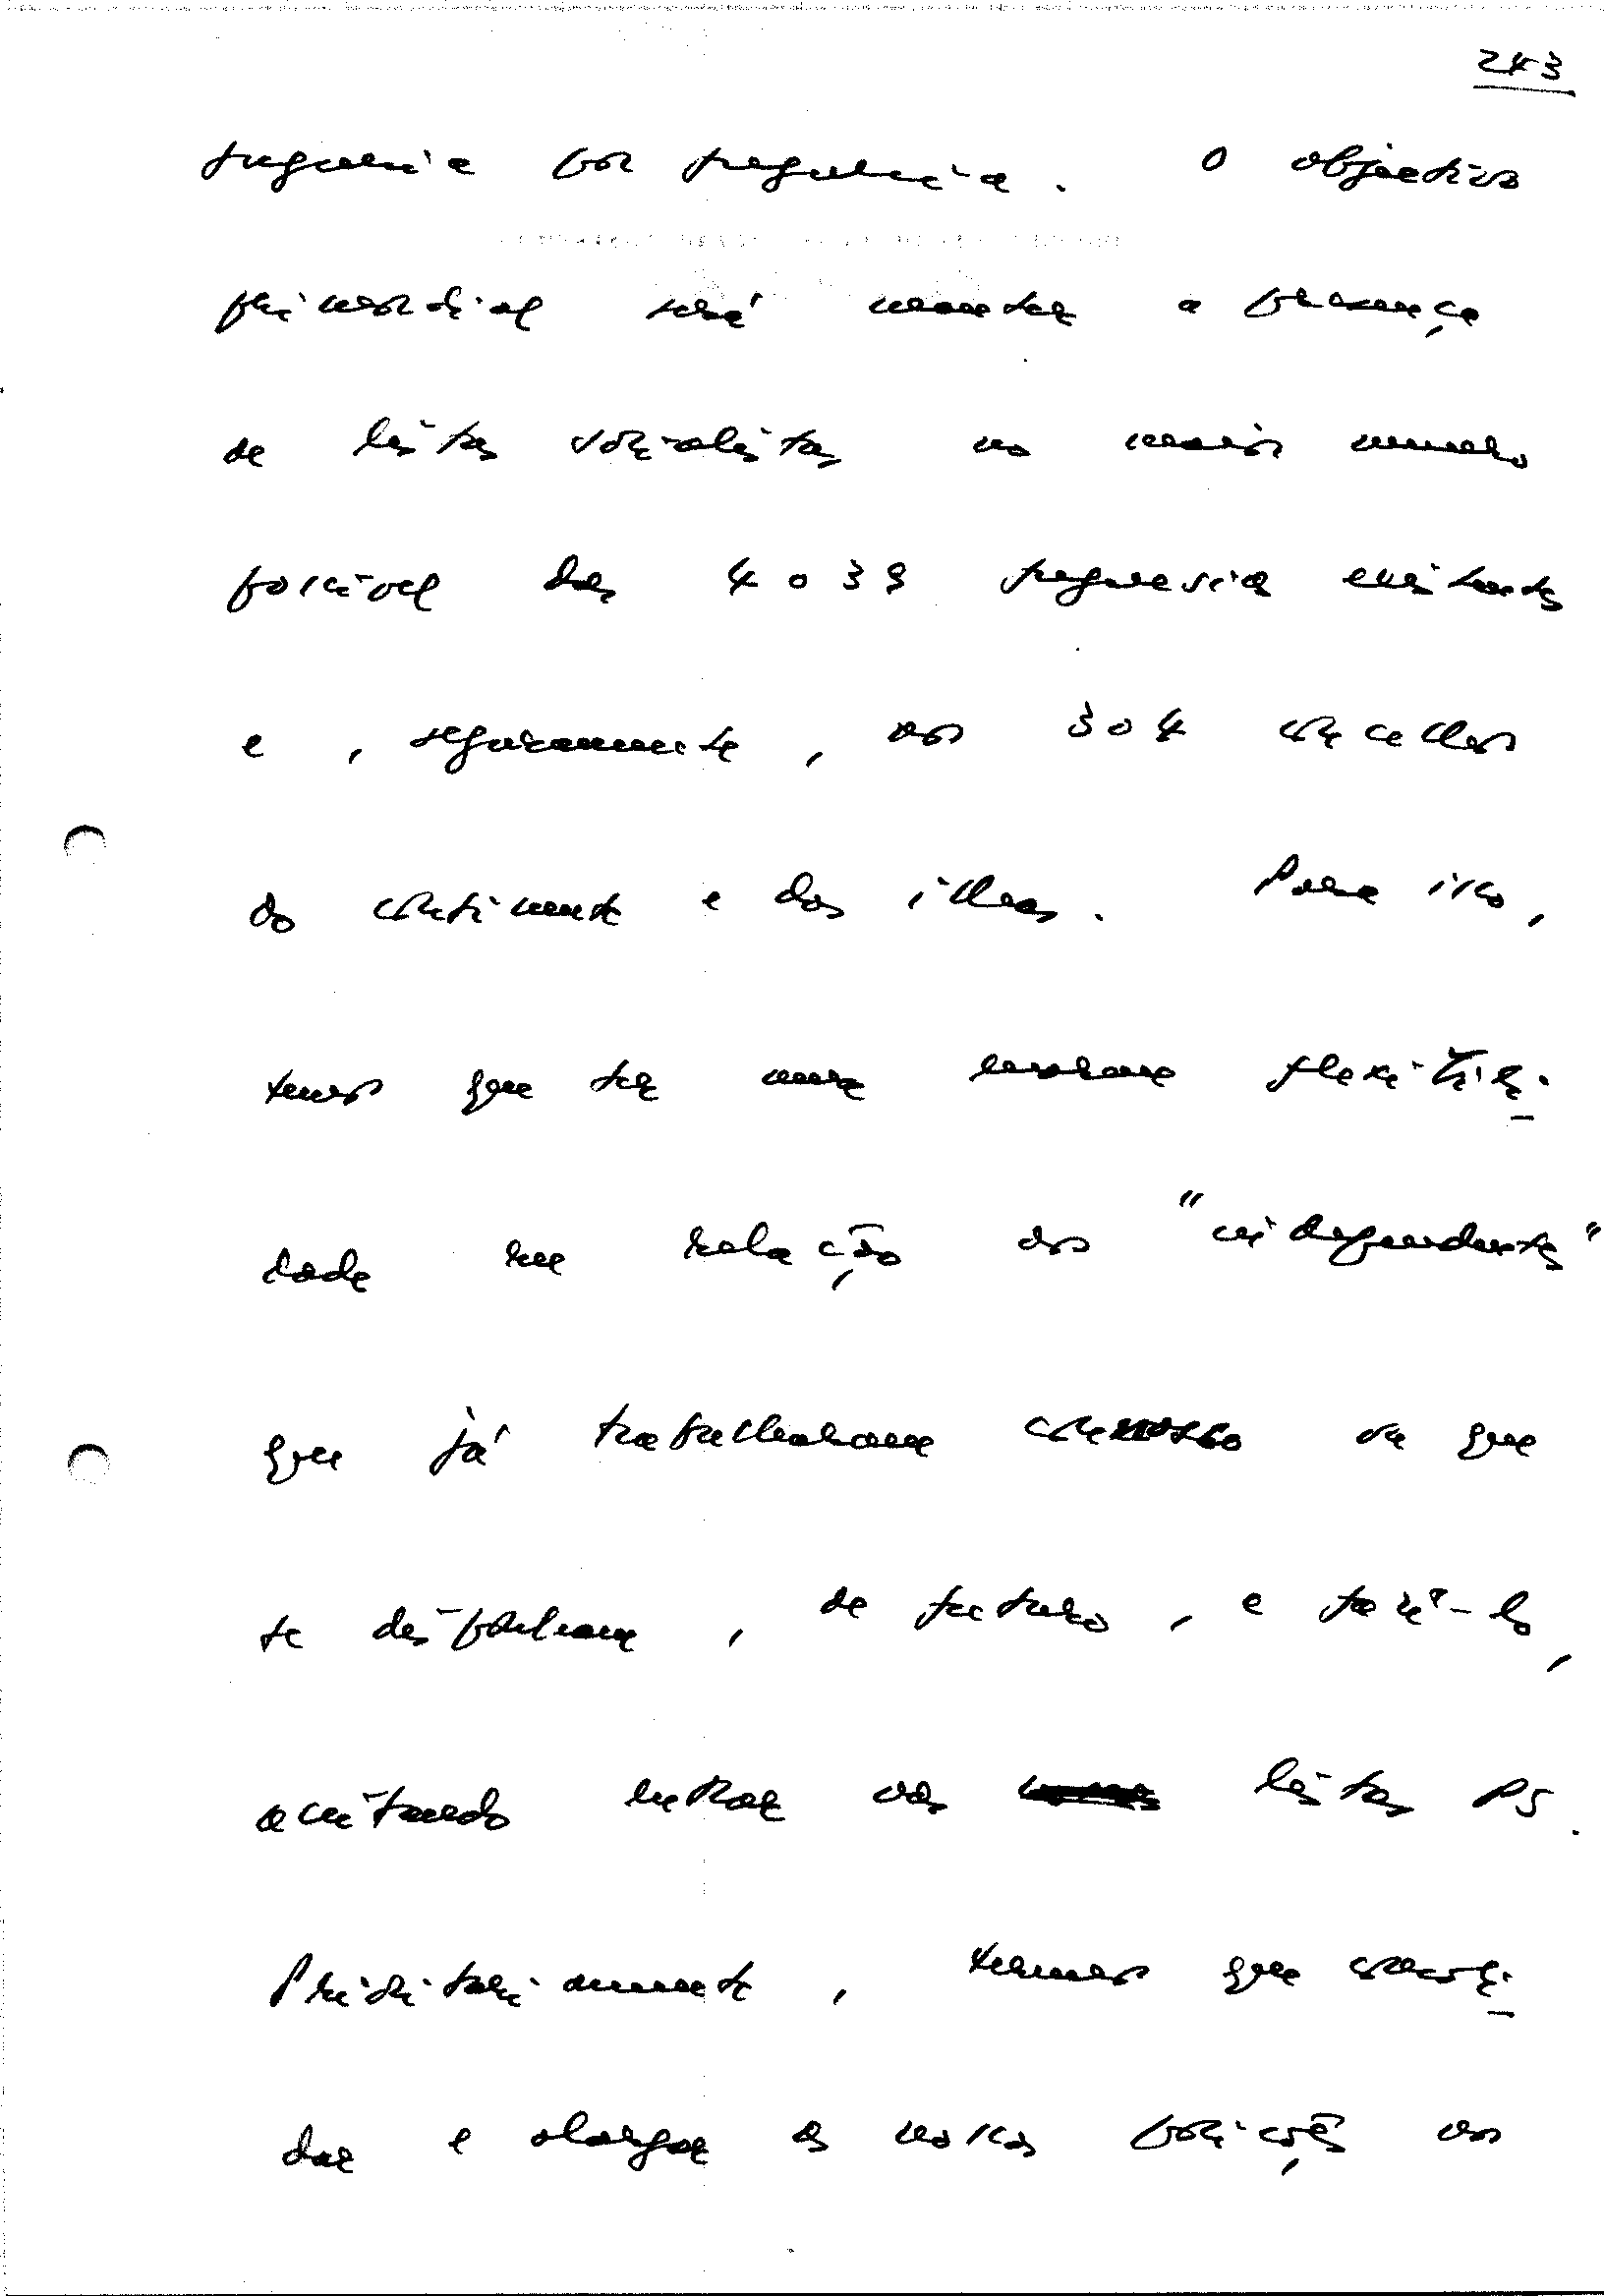 243
freguesia por freguesia. O objectivo
primordial será manter a presença
de listas socialistas no maior numero
possível das 4039 freguesias existentes
e, seguramente, nos 304 concelhos
do continente e das ilhas. Para isso,
temos que ter uma enorme flexibili-
dade em relação aos "independentes"
que já trabalharam connosco ou que
se disponham, de futuro, a fazê-lo,
aceitando entrar nas listas PS.
Prioritariamente, temos que consoli-
dar e alargar as nossas posições nos